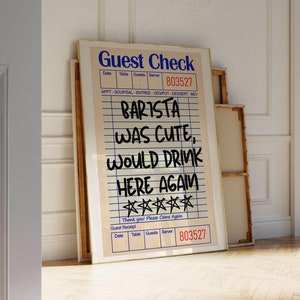 Guest Check
Date Table Guests Server
803527
APPT - SOUP/SAL - ENTREE - VEG/POT - DESSERT - BEV
BARISTA
WAS CUTE,
WOULD DRINK
HERE AGAIN
☆☆☆☆☆
Thank you! Please Come Again
Guest Receipt
Date Table Guests Server
803527